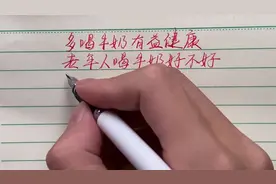 多喝牛奶有益健康
老年人喝牛奶好不好